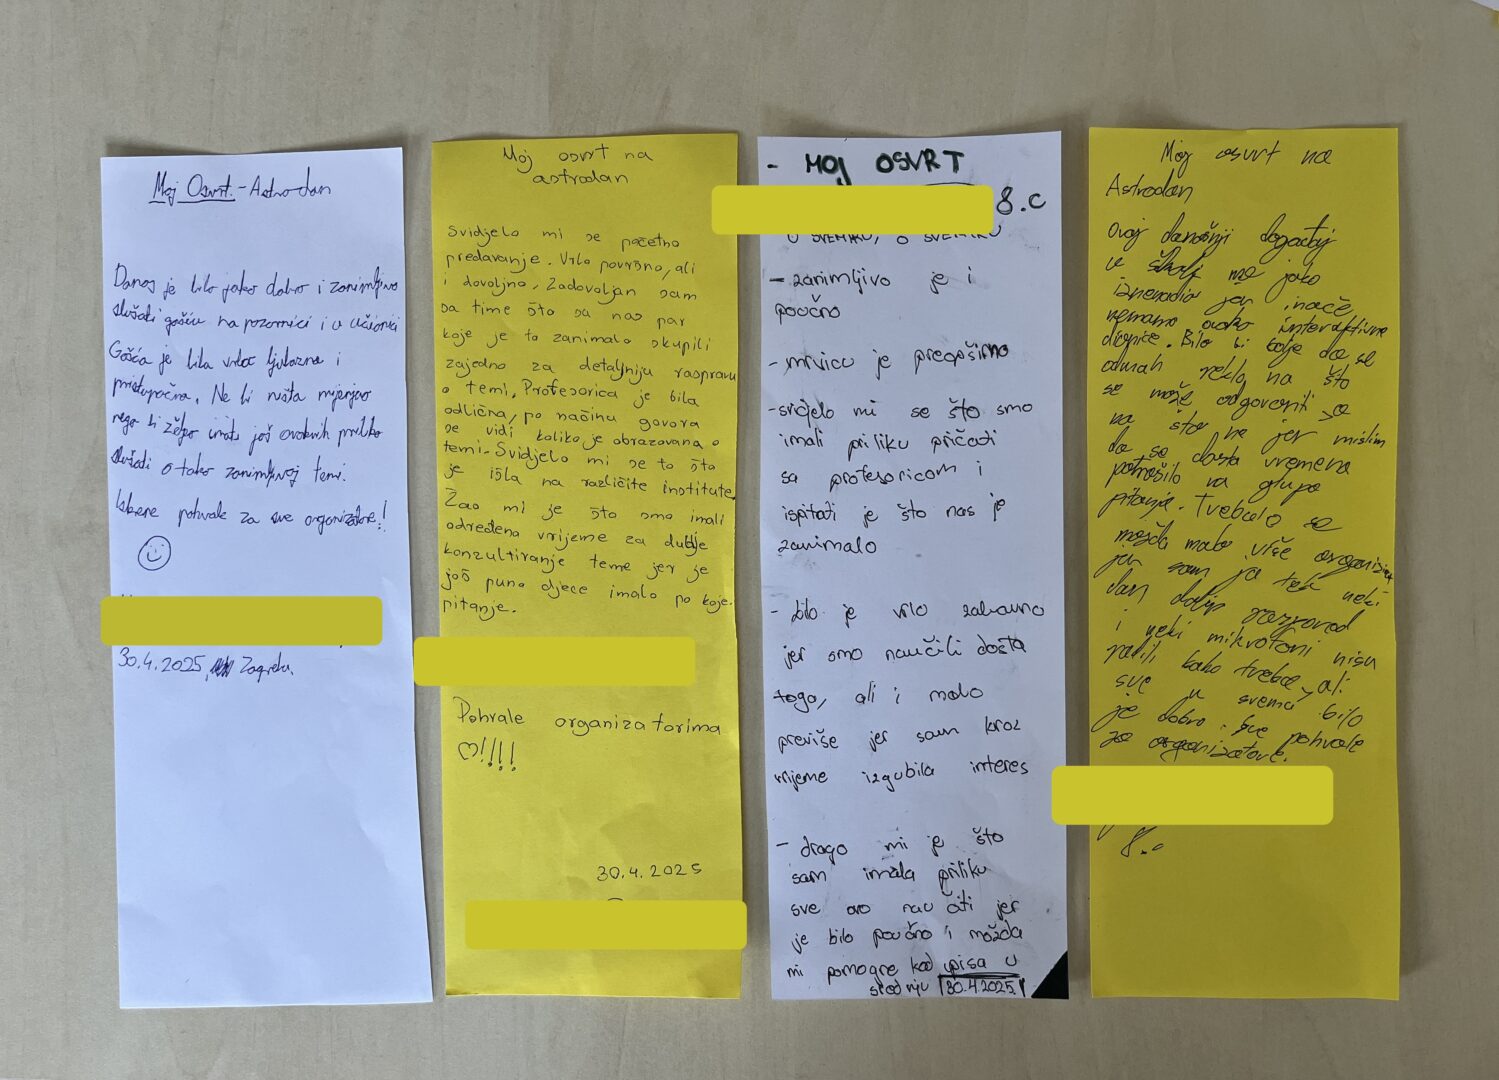 Moj Osvrt - Astro dan
Danas je bilo jako dobro i zanimljivo
slušati gošću na pozornici i u učionici
Gošća je bila vrlo ljubazna i
pristupačna. Ne bi ništa mijenjao
nego bi želio imati još ovakvih prilika
slušati o tako zanimljivoj temi.
Iskrene pohvale za sve organizatore!
30.4.2025, Zagreb.
Moj osvrt na
astrodan
Svidjelo mi se početno
predavanje. Vrlo površno, ali
i dovoljno. Zadovoljan sam
sa time što su nas par
koje je to zanimalo skupili
zajedno za detaljniju raspravu
o temi. Profesorica je bila
odlična, po načinu govora
se vidi koliko je obrazovana o
temi. Svidjelo mi se to što
je išla na različite institute.
Žao mi je što smo imali
određena vrijeme za dublje
konzultiranje teme jer je
još puno djece imalo po koje
pitanje.
Pohvale organizatorima
♡!!!!
30.4.2025
- MOJ OSVRT
8.c
U SVEMIRU, O SVEMIRU
- zanimljivo je i
poučno
- mrvicu je preopširno
- svidjelo mi se što smo
imali priliku pričati
sa profesoricom i
ispitati je što nas je
zanimalo
- bilo je vrlo zabavno
jer smo naučili dosta
toga, ali i malo
previše jer sam kroz
vrijeme izgubila interes
- drago mi je što
sam imala priliku
sve ovo naučiti jer
je bilo poučno i možda
mi pomogne kod upisa u
srednju 30.4.2025.
Moj osvrt na
Astrodan
Ovaj današnji događaj
u školi me jako
iznenadio jer inače
nemamo ovako interaktivne
dionice. Bilo bi bolje da se
odmah reklo na što
se može odgovoriti a
na što ne jer mislim
da se dosta vremena
potrošilo na glupa
pitanja. Trebalo se
možda malo više organizirat
jer sam ja tek neki
dan dobio raspored
i neki mikrofoni nisu
radili kako treba, ali
sve u svemu bilo
je dobro. Sve pohvale
za organizatore.
8.c